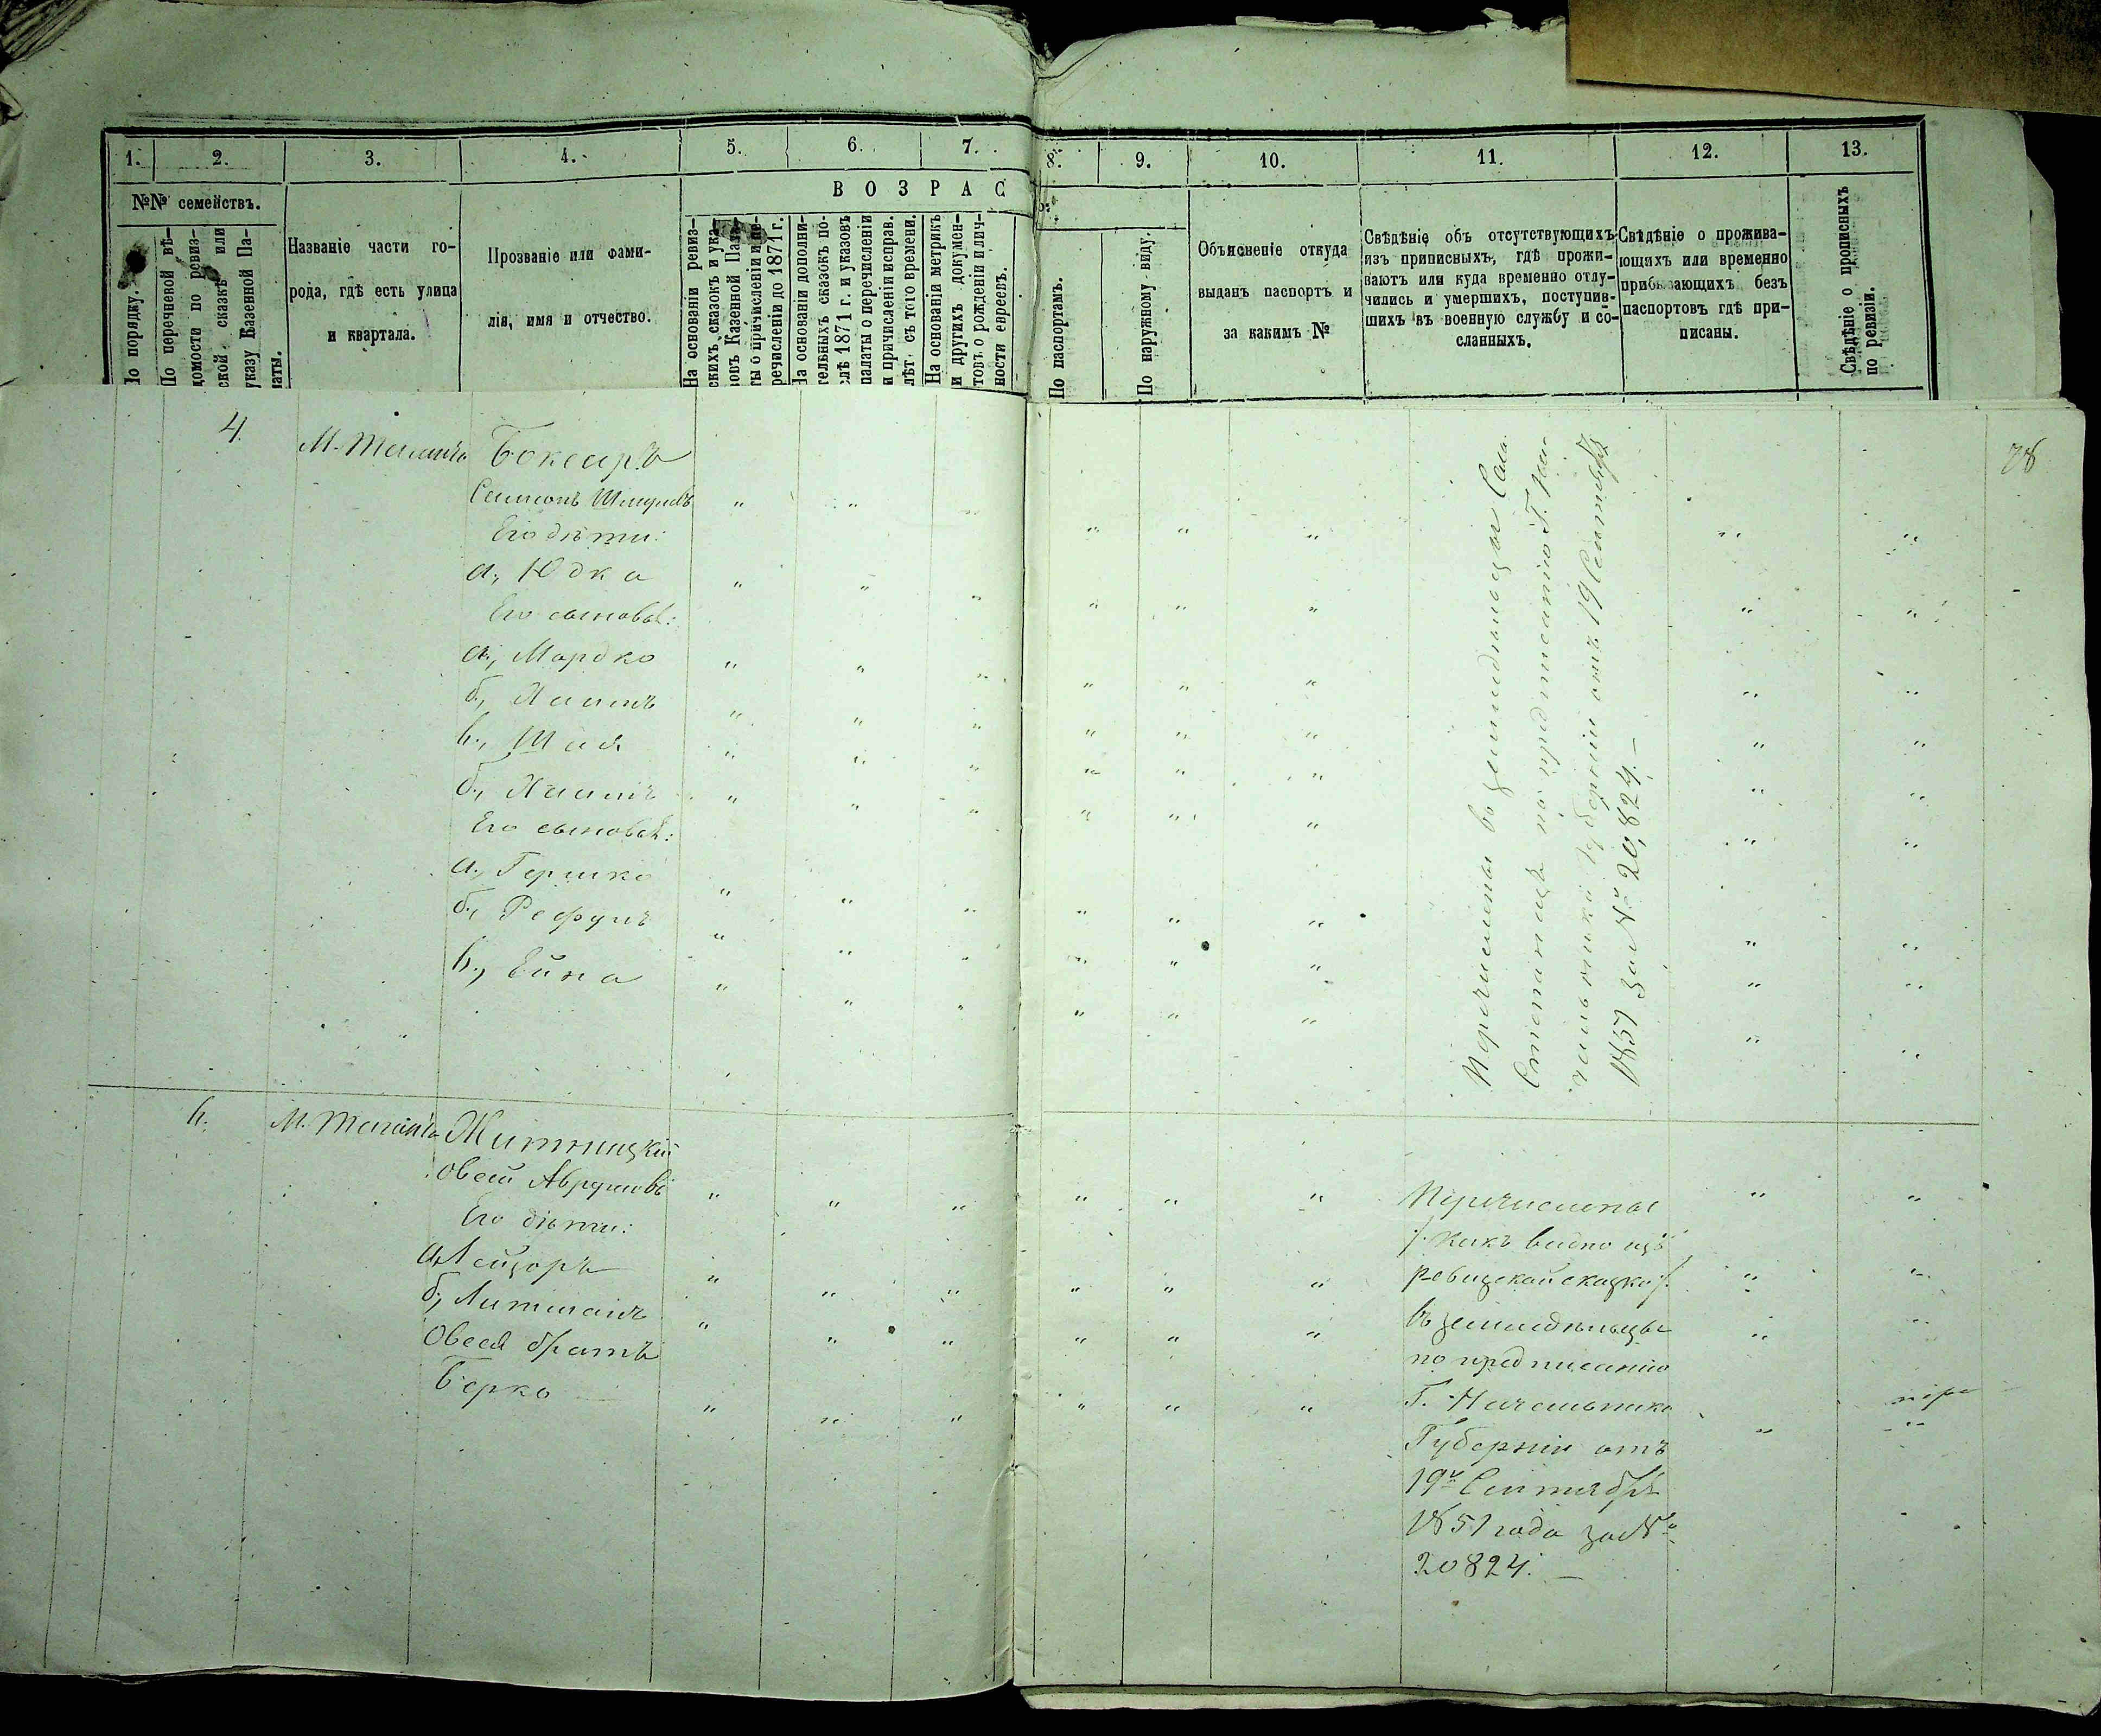 1. 2. 3. 4. 5. 6. 7. 8. 9. 10. 11. 12. 13.
№№ семействъ.
По порядку.
По перечневой вѣ-
домости по ревиз-
ской сказкѣ или
указу Казенной Па-
латы.
Названіе части го-
рода, гдѣ есть улица
и квартала.
Прозваніе или фами-
лія, имя и отчество.
ВОЗРАС
На основаніи ревиз-
скихъ сказокъ и ука-
зовъ Казенной Пала-
ты о причисленіи и пе-
речисленіи до 1871 г.
На основаніи дополни-
тельныхъ сказокъ по-
слѣ 1871 г. и указовъ
палаты о перечисленіи
и причисленіи исправ.
лѣт. съ того времени.
На основаніи метрикъ
и другихъ докумен-
товъ о рожденіи и лич-
ности евреевъ.
По паспортамъ.
По наружному виду.
Объясненіе откуда
выданъ паспортъ и
за какимъ №
Свѣдѣніе объ отсутствующихъ
изъ приписныхъ, гдѣ прожи-
ваютъ или куда временно отлу-
чились и умершихъ, поступив-
шихъ въ военную службу и со-
сланныхъ.
Свѣдѣніе о прожива-
ющихъ или временно
прибывающихъ безъ
паспортовъ гдѣ при-
писаны.
Свѣдѣніе о прописныхъ
по ревизіи.
78
4.
Боксаръ
Его дѣти:
а., Юдка
Его сыновья:
а., Мордко
б., Хаимъ
в., Шая
б., Хаимъ
Его сыновья:
а., Гершко
б., Рефулъ
в., Ейна
Перечислены въ земледѣльцы
по предписанію Г. На-
чальника Губерніи отъ 19 Сентября
1851 за № 20,824. —
Житницкій
Овсій Аврумовъ
Его дѣти:
а., Лейзоръ
б., Литманъ
Овсея братъ
Берко
Перечислены
/: какъ видно изъ
ревизской сказки :/
въ земледѣльцы
по предписанію
Г. Начальника
Губерніи отъ
19го Сентября
1851 года за №
20824. —